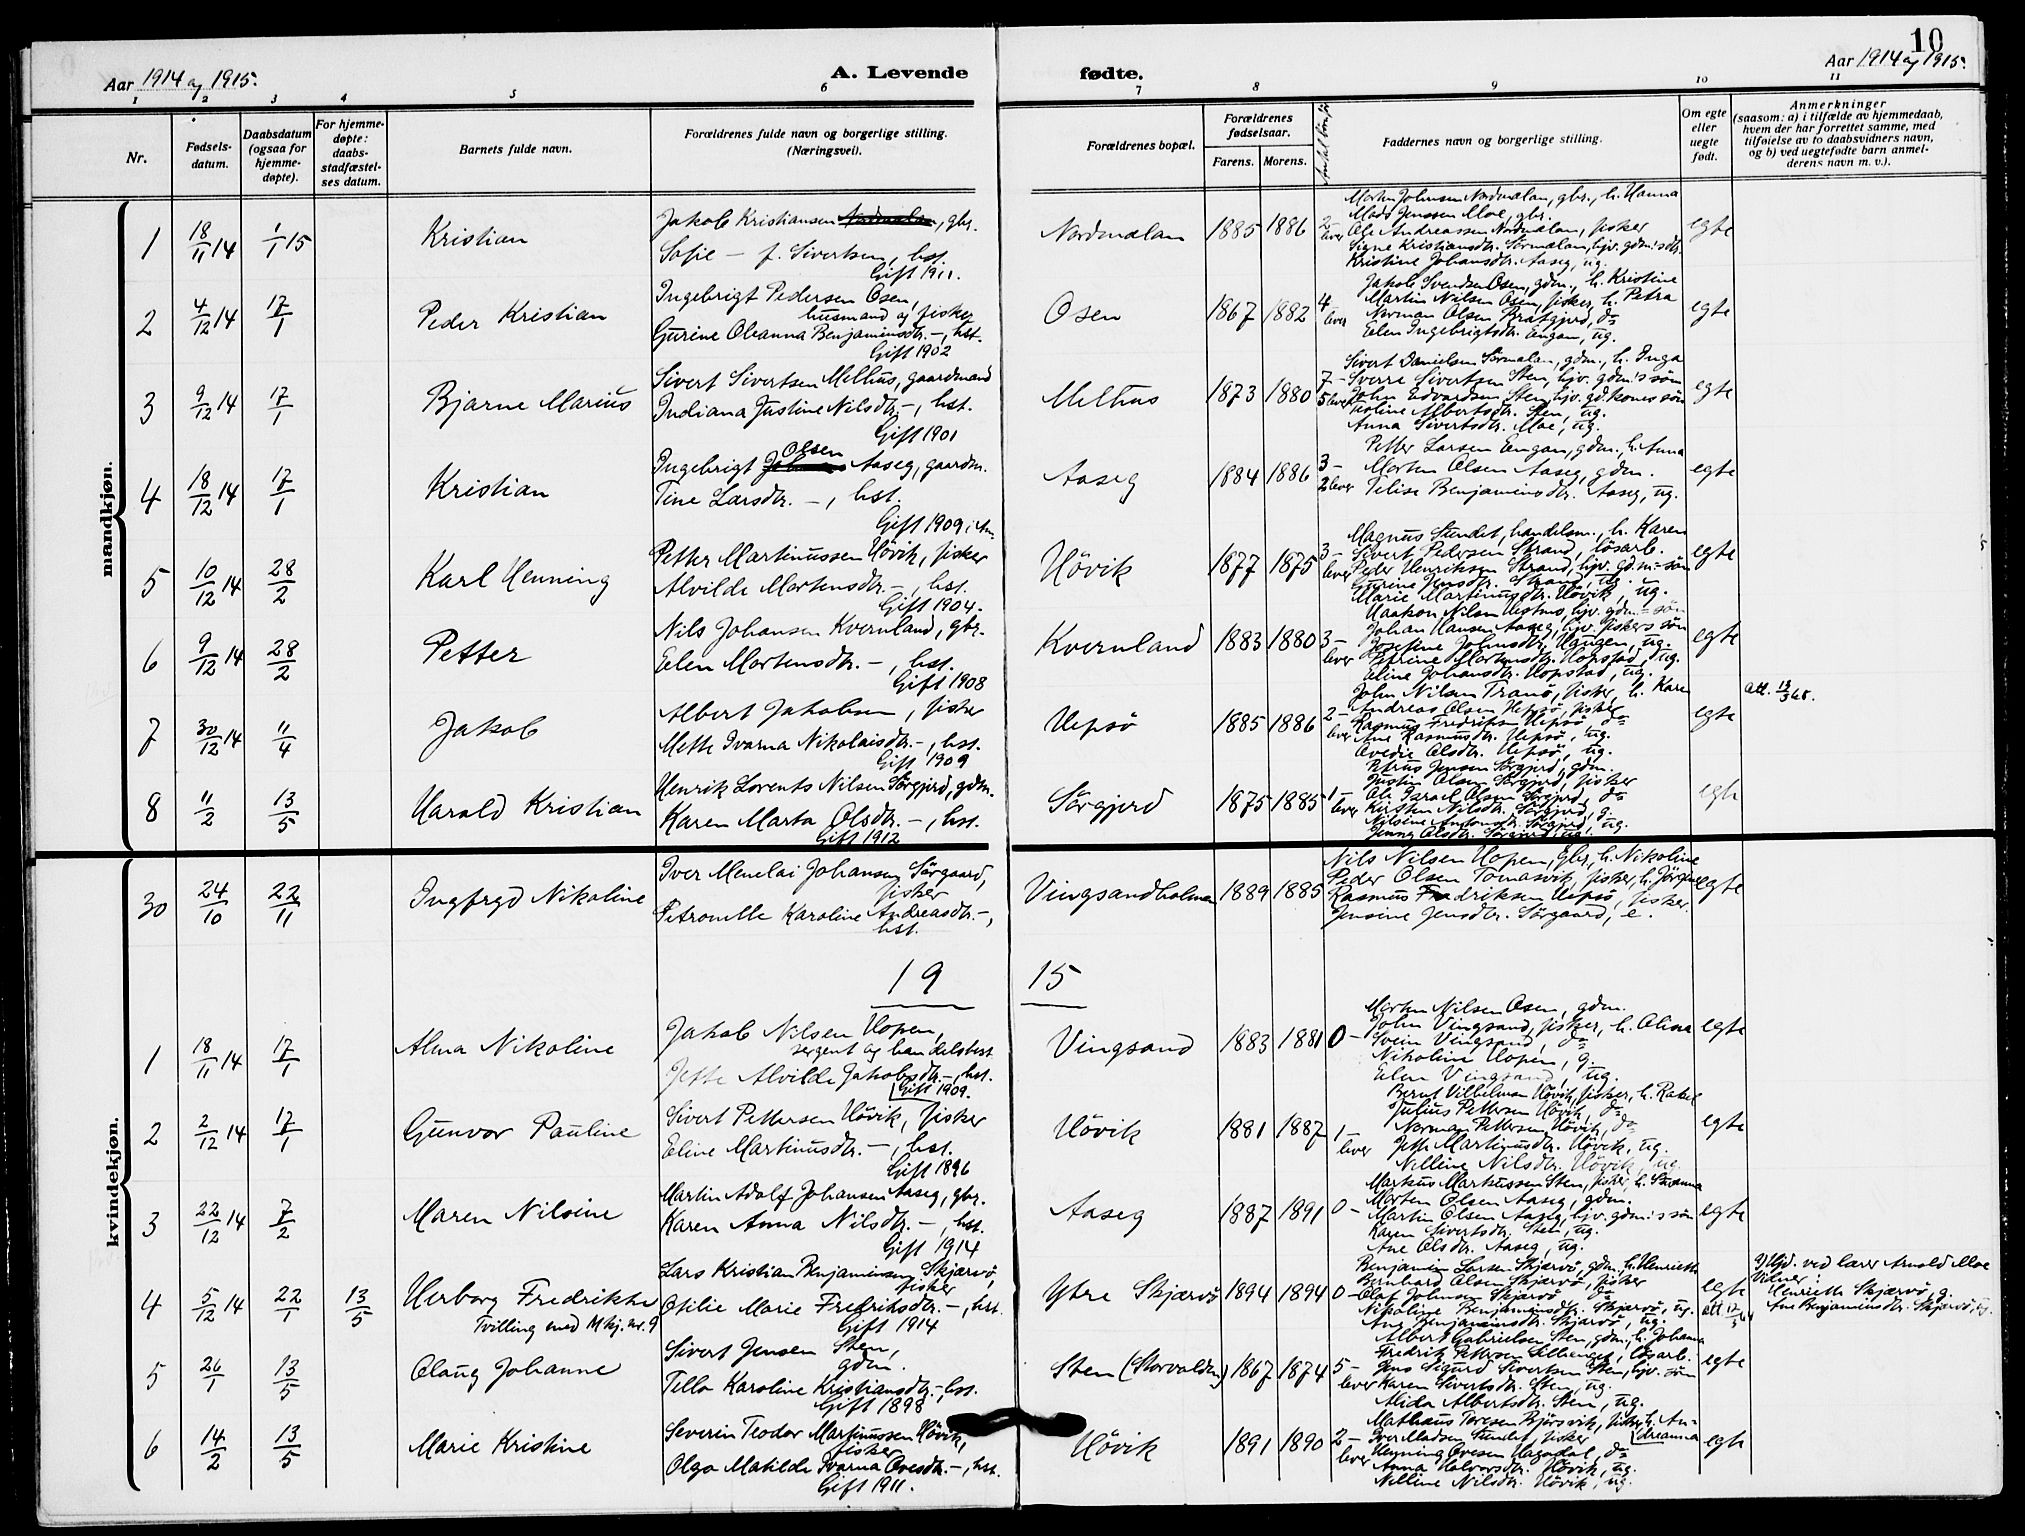 10
Aar 1914 og 1915.
A. Levende
fødte.
Aar 1914 og 1915.
1 2 3 4 5 6 7 8 9 10 11
Nr.
Fødsels-
datum.
Daabsdatum
(ogsaa for
hjemme-
døpte).
For hjemme-
døpte:
daabs-
stadfæstel-
ses datum.
Barnets fulde navn.
Forældrenes fulde navn og borgerlige stilling.
(Næringsvei).
Forældrenes bopæl.
Forældrenes
fødselsaar.
Farens. Morens.
Faddernes navn og borgerlige stilling.
Om egte
eller
uegte
født.
Anmerkninger
(saasom: a) i tilfælde av hjemmedaab,
hvem der har forrettet samme, med
tilføielse av to daabsvidners navn,
og b) ved uegtefødte barn anmel-
derens navn m. v.).
mandkjøn.
1 18/11 14 1/1 15 Kristian
Jakob Kristiansen Nordmelan, gbr.
Sofie – f. Sivertsen, hst.
Gift 1911.
Nordmelan 1885 1886 2 – lever
Morten Johnsen Nordmelan, gbr., h. Hanna
Mads Jensen Moe, gbr.
Ole Andreassen Nordmelan, fisker
Signe Kristiansdtr. Sørmelan, hjv. gdm.'s dtr.
Kristine Johansdtr. Aaseg, ug.
egte
2 4/12 14 17/1 Peder Kristian
Ingebrigt Pedersen Osen,
husmand og fisker
Gurine Oleanna Benjaminsdtr. –, hst.
Gift 1902
Osen 1867 1882 4 lever
Jakob Svendsen Osen, gdm., h. Kristine
Martin Nilsen Osen, fisker, h. Petra
Norman Olsen Bratgjerd, do
Elen Ingebrigtsdtr. Engan, ug.
egte
3 9/12 14 17/1 Bjarne Marius
Sivert Sivertsen Melhus, gaardmand
Indiana Justine Nilsdtr. –, hst.
Gift 1901
Melhus 1873 1880 7 – 5 lever
Sivert Danielsen Sørmelan, gdm., h. Inga
Sverre Sivertsen Sten, hjv. gdm.'s søn
John Edvardsen Sten, hjv. gd.kones søn
Albertsdtr. Sten, ug.
Anna Sivertsdtr. Moe, ug.
egte
4 18/12 14 17/1 Kristian
Olsen
Ingebrigt Aaseg, gaardm.
Tine Larsdtr. –, hst.
Gift 1909
Aaseg 1884 1886 3 – 2 lever
Petter Larsen Engan, gdm., h. Anna
Morten Olsen Aaseg, gdm.
Telise Benjaminsdtr. Aaseg, ug.
egte
5 10/12 14 28/2 Karl Henning
Petter Martinussen Høvik, fisker
Alvilde Mortensdtr. –, hst.
Gift 1904.
Høvik 1877 1875 3 – lever
Magnus Stendet, handelsm., h. Karen
Sivert Pedersen Strand, løsarb.
Peder Henriksen Strand, hjv. gdm.'s søn
Gurine Jensdtr. Strand, ug.
Marie Martinusdtr. Høvik, ug.
egte
6 9/12 14 28/2 Petter
Nils Johansen Kvernland, gbr.
Elen Mortensdtr. –, hst.
Gift 1908
Kvernland 1883 1880 3 – lever
Haakon Nilsen Melhus, hjv. gdm.'s søn
Johan Hansen Aaseg, hjv. fiskers søn
Josefine Johnsdtr. Haugen, ug.
Petrine Mortensdtr. Hopstad, ug.
Eline Johansdtr. Hopstad, ug.
egte
7 30/12 14 11/4 Jakob
Albert Jakobsen, fisker
Mette Ivarna Nikolaisdtr. –, hst.
Gift 1909
Hepsø 1885 1886 2 – lever
John Nilsen Tranø, fisker, h. Karen
Andreas Olsen Hepsø, fisker
Rasmus Fredriksen Hepsø, do
Ane Rasmusdtr. Hepsø, ug.
Ovedie Olsdtr. Hepsø, ug.
egte
8 11/2 13/5 Harald Kristian
Henrik Lorents Nilsen Sørgjerd, gdm.
Karen Marta Olsdtr. –, hst.
Gift 1912
Sørgjerd 1875 1885 1 – lever
Petrus Jensen Sørgjerd, gdm.
Justin Olsen Sørgjerd, fisker
Ole Israel Olsen Sørgjerd, do
Kirsten Nilsdtr. Sørgjerd, g.
Nilsine Antonsdtr. Sørgjerd, ug.
Jenny Olsdtr. Sørgjerd, ug.
egte
kvindekjøn.
30 24/10 22/11 Ingfryd Nikoline
Iver Menelai Johansen Sørgaard,
fisker
Petronelle Karoline Andreasdtr. –,
hst.
Vingsandholmen 1889 1885
Nils Nilsen Hopen, gbr., h. Nikoline
Peder Olsen Tomasvik, fisker, h. Jørgine
Rasmus Fredriksen Hepsø, fisker.
Jensine Jensdtr. Sørgaard, e.
egte
19 15
1 18/11 14 17/1 Alma Nikoline
Jakob Nilsen Hopen,
sergent og handelsbest.
Jette Alvilde Jakobsdtr. –, hst.
Gift 1909.
Vingsand 1883 1881 0 –
Morten Nilsen Osen, gdm.
John Vingsand, fisker, h. Olina
Svein Vingsand, do
Nikoline Hopen, g.
Elen Vingsand, ug.
egte
2 2/12 14 17/1 Gunvor Pauline
Sivert Pettersen Høvik, fisker
Eline Martinusdtr. –, hst.
Gift 1896
Høvik 1881 1887 1 – lever
Bernt Vilhelmsen Høvik, fisker, h. Rakel
Julius Pettersen Høvik, do
Norman Pettersen Høvik, do
Jette Martinusdtr. Høvik, ug.
Nelline Nilsdtr. Høvik, ug.
egte
3 22/12 14 7/2 Maren Nilsine
Martin Adolf Johansen Aaseg, gbr.
Karen Anna Nilsdtr. –, hst.
Gift 1914
Aaseg 1887 1891 0 –
Markus Markussen Sten, fisker, h. Susanna
Morten Olsen Aaseg, gdm.
Martin Olsen Aaseg, hjv. gdm.'s søn
Karen Sivertsdtr. Sten, ug.
Ane Olsdtr. Aaseg, ug.
egte
4 5/12 14 22/1 13/5 Herborg Fredrikke
Tvilling med Mkj. nr. 9
Lars Kristian Benjaminsen Skjærvø,
fisker
Otilie Marie Fredriksdtr. –, hst.
Gift 1914
Ytre Skjærvø 1894 1894 0 –
Benjamin Larsen Skjærvø, gdm., h. Henriette
Bernhard Olsen Skjærvø, fisker
Olaf Johnsen Skjærvø, do
Nikoline Benjaminsdtr. Skjærvø, ug.
Ane Benjaminsdtr. Skjærvø, ug.
egte
Hjd. ved lærer Arnold Moe
Vidner:
Henriette Skjærvø, g.
Ane Benjaminsdtr. Skjærvø, ug.
5 26/1 13/5 Olaug Johanne
Sivert Jensen Sten,
gdm.
Tella Karoline Kristiansdtr. –, hst.
Gift 1898
Sten (Storvolden) 1867 1874 5 – lever
Albert Gabrielsen Sten, gdm., h. Johanna
Fredrik Pettersen, løsarb.
Jens Sigurd Sivertsen Sten, hjv. søn
Karen Sivertsdtr. Sten, ug.
Alida Albertsdtr. Sten, ug.
egte
6 14/2 13/5 Marie Kristine
Severin Teodor Martinussen Høvik,
fisker
Olga Matilde Ivarna Ovesdtr. –, hst.
Gift 1911.
Høvik 1891 1890 2 – lever
Mathæus Toresen Bjørsvik, fisker, h. An-
dreanna
Iver Madsen Stendet, fisker
Henning Ovesen Hagadal, do
Anna Halvorsdtr. Høvik, ug.
Nelline Nilsdtr. Høvik, ug.
egte